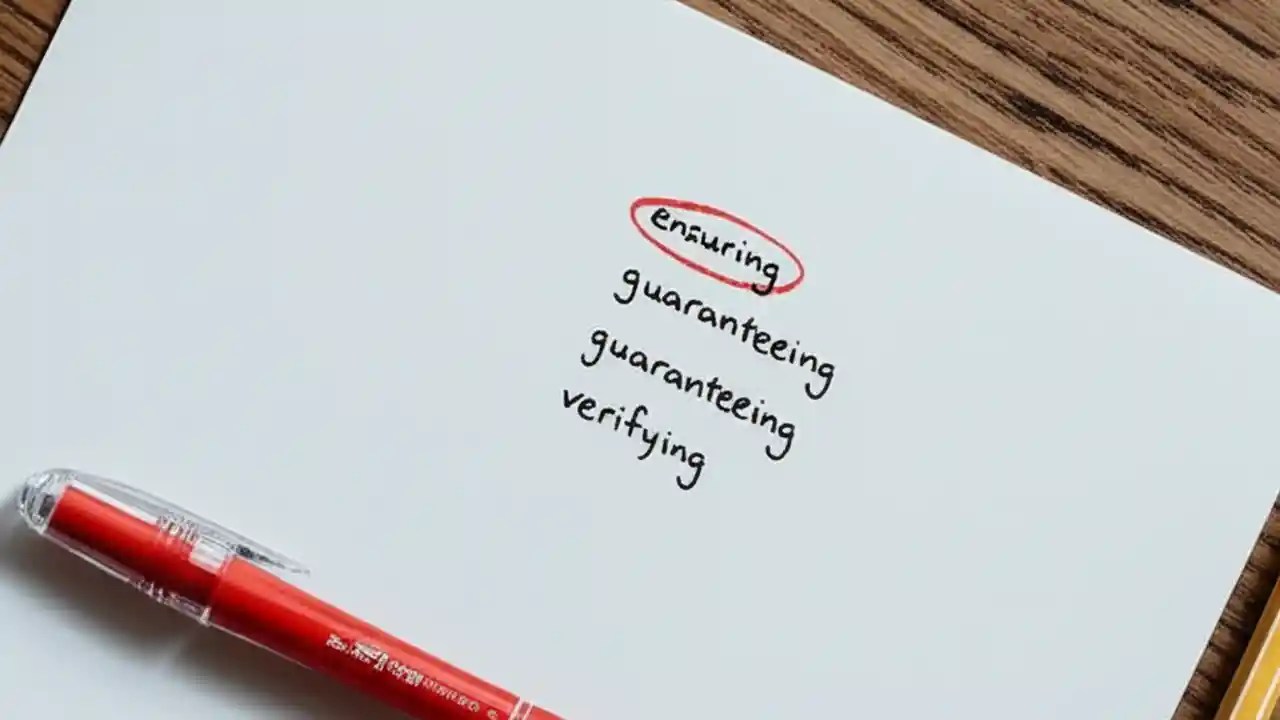 ensuring
guaranteeing
guaranteeing
verifying